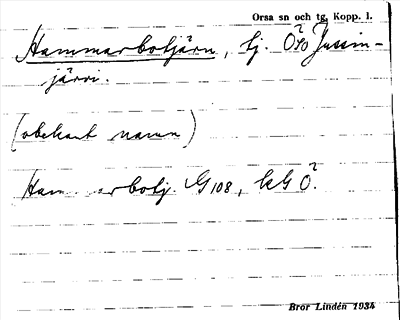 Orsa sn och tg. Kopp. l.
Hammarbotjärn, tj. ÖSO Jussin-
järvi.
(obekant namn)
Ham. arbotj. G108, kli Ö.
Bror Lindén 1934